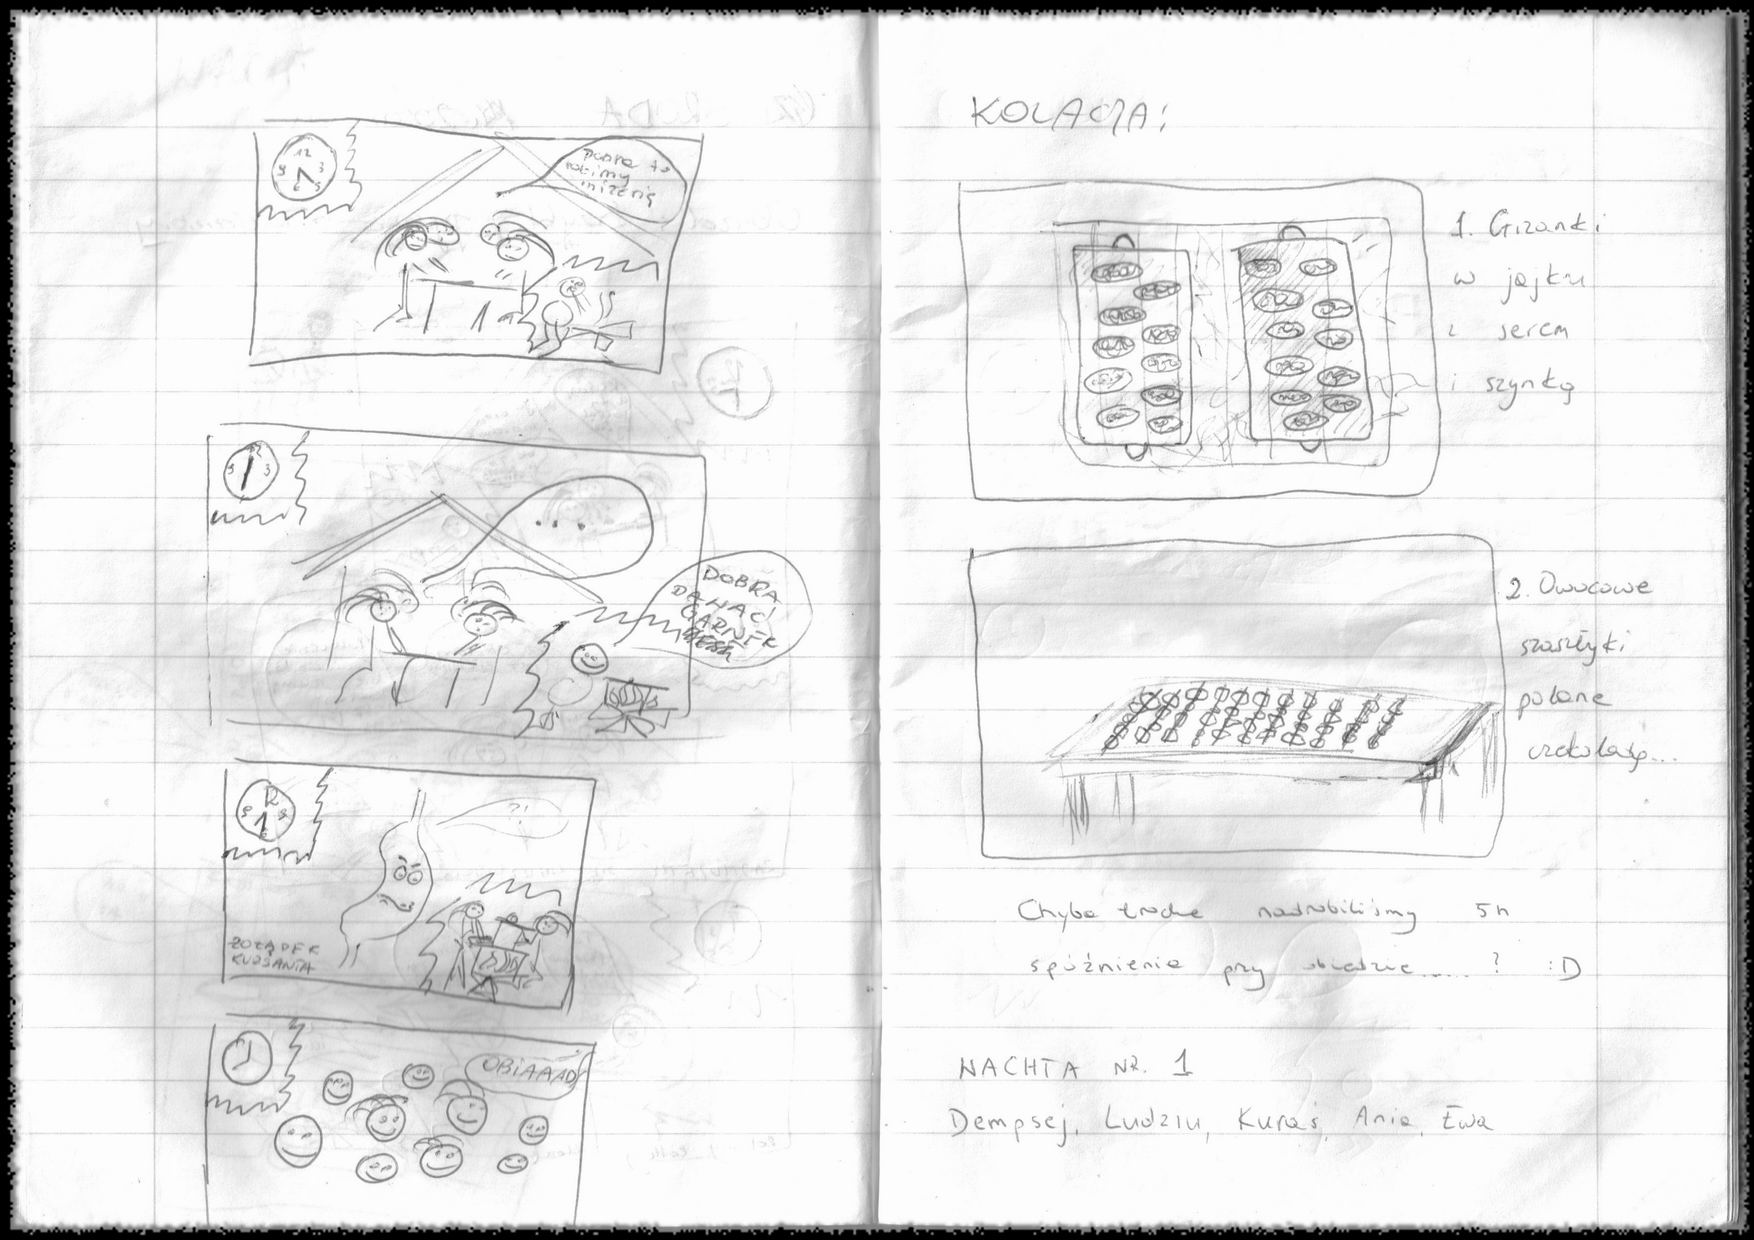 12
9 3
6
DOBRA TO
ROBIMY
MIZERIĘ
12
9 3
...
DOBRA
DAWAĆ
GARNEK
12
9 3
6
?!
ŻOŁĄDEK
KURSANTA
OBIAAAD
KOLACJA:
1. Grzanki
w jajku
z serem
i szynką
2. Owocowe
szaszłyki
polane
czekoladą...
Chyba trochę nadrobiliśmy 5h
spóźnienie przy obiedzie..... ? :D
WACHTA NR. 1
Dempsej, Ludziu, Kuraś, Ania, Ewa